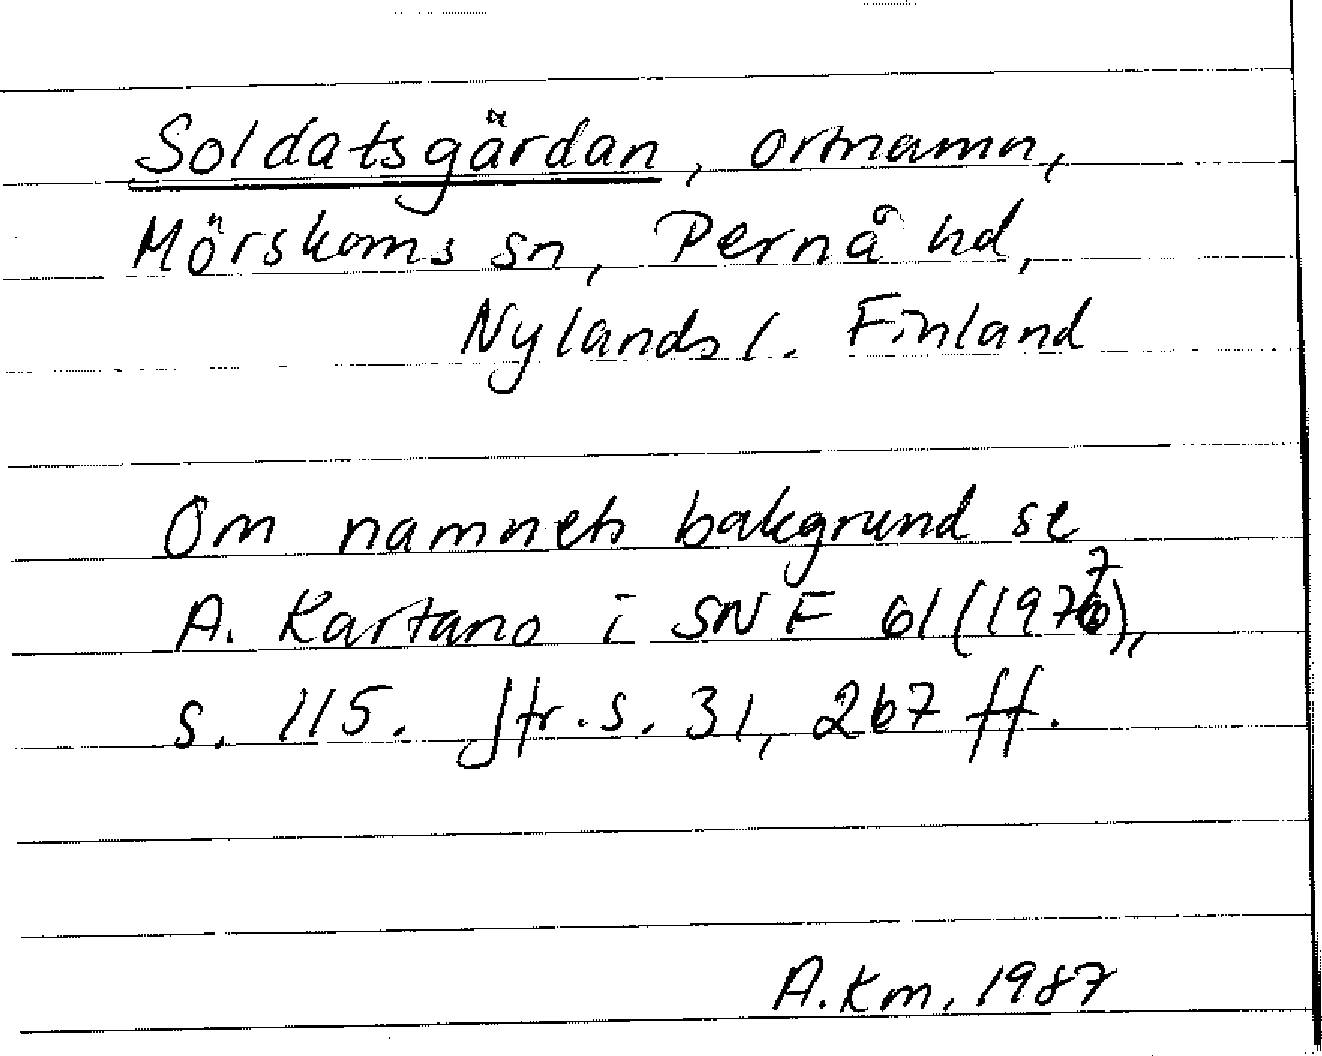 Soldatsgärdan, ortnamn,
Mörskoms sn, Pernå hd,
Nylands l. Finland
Om namnets bakgrund se
A. Kartano i SNF 61 (1977),
s. 115. Jfr. s. 31, 267 ff.
A. Km. 1987